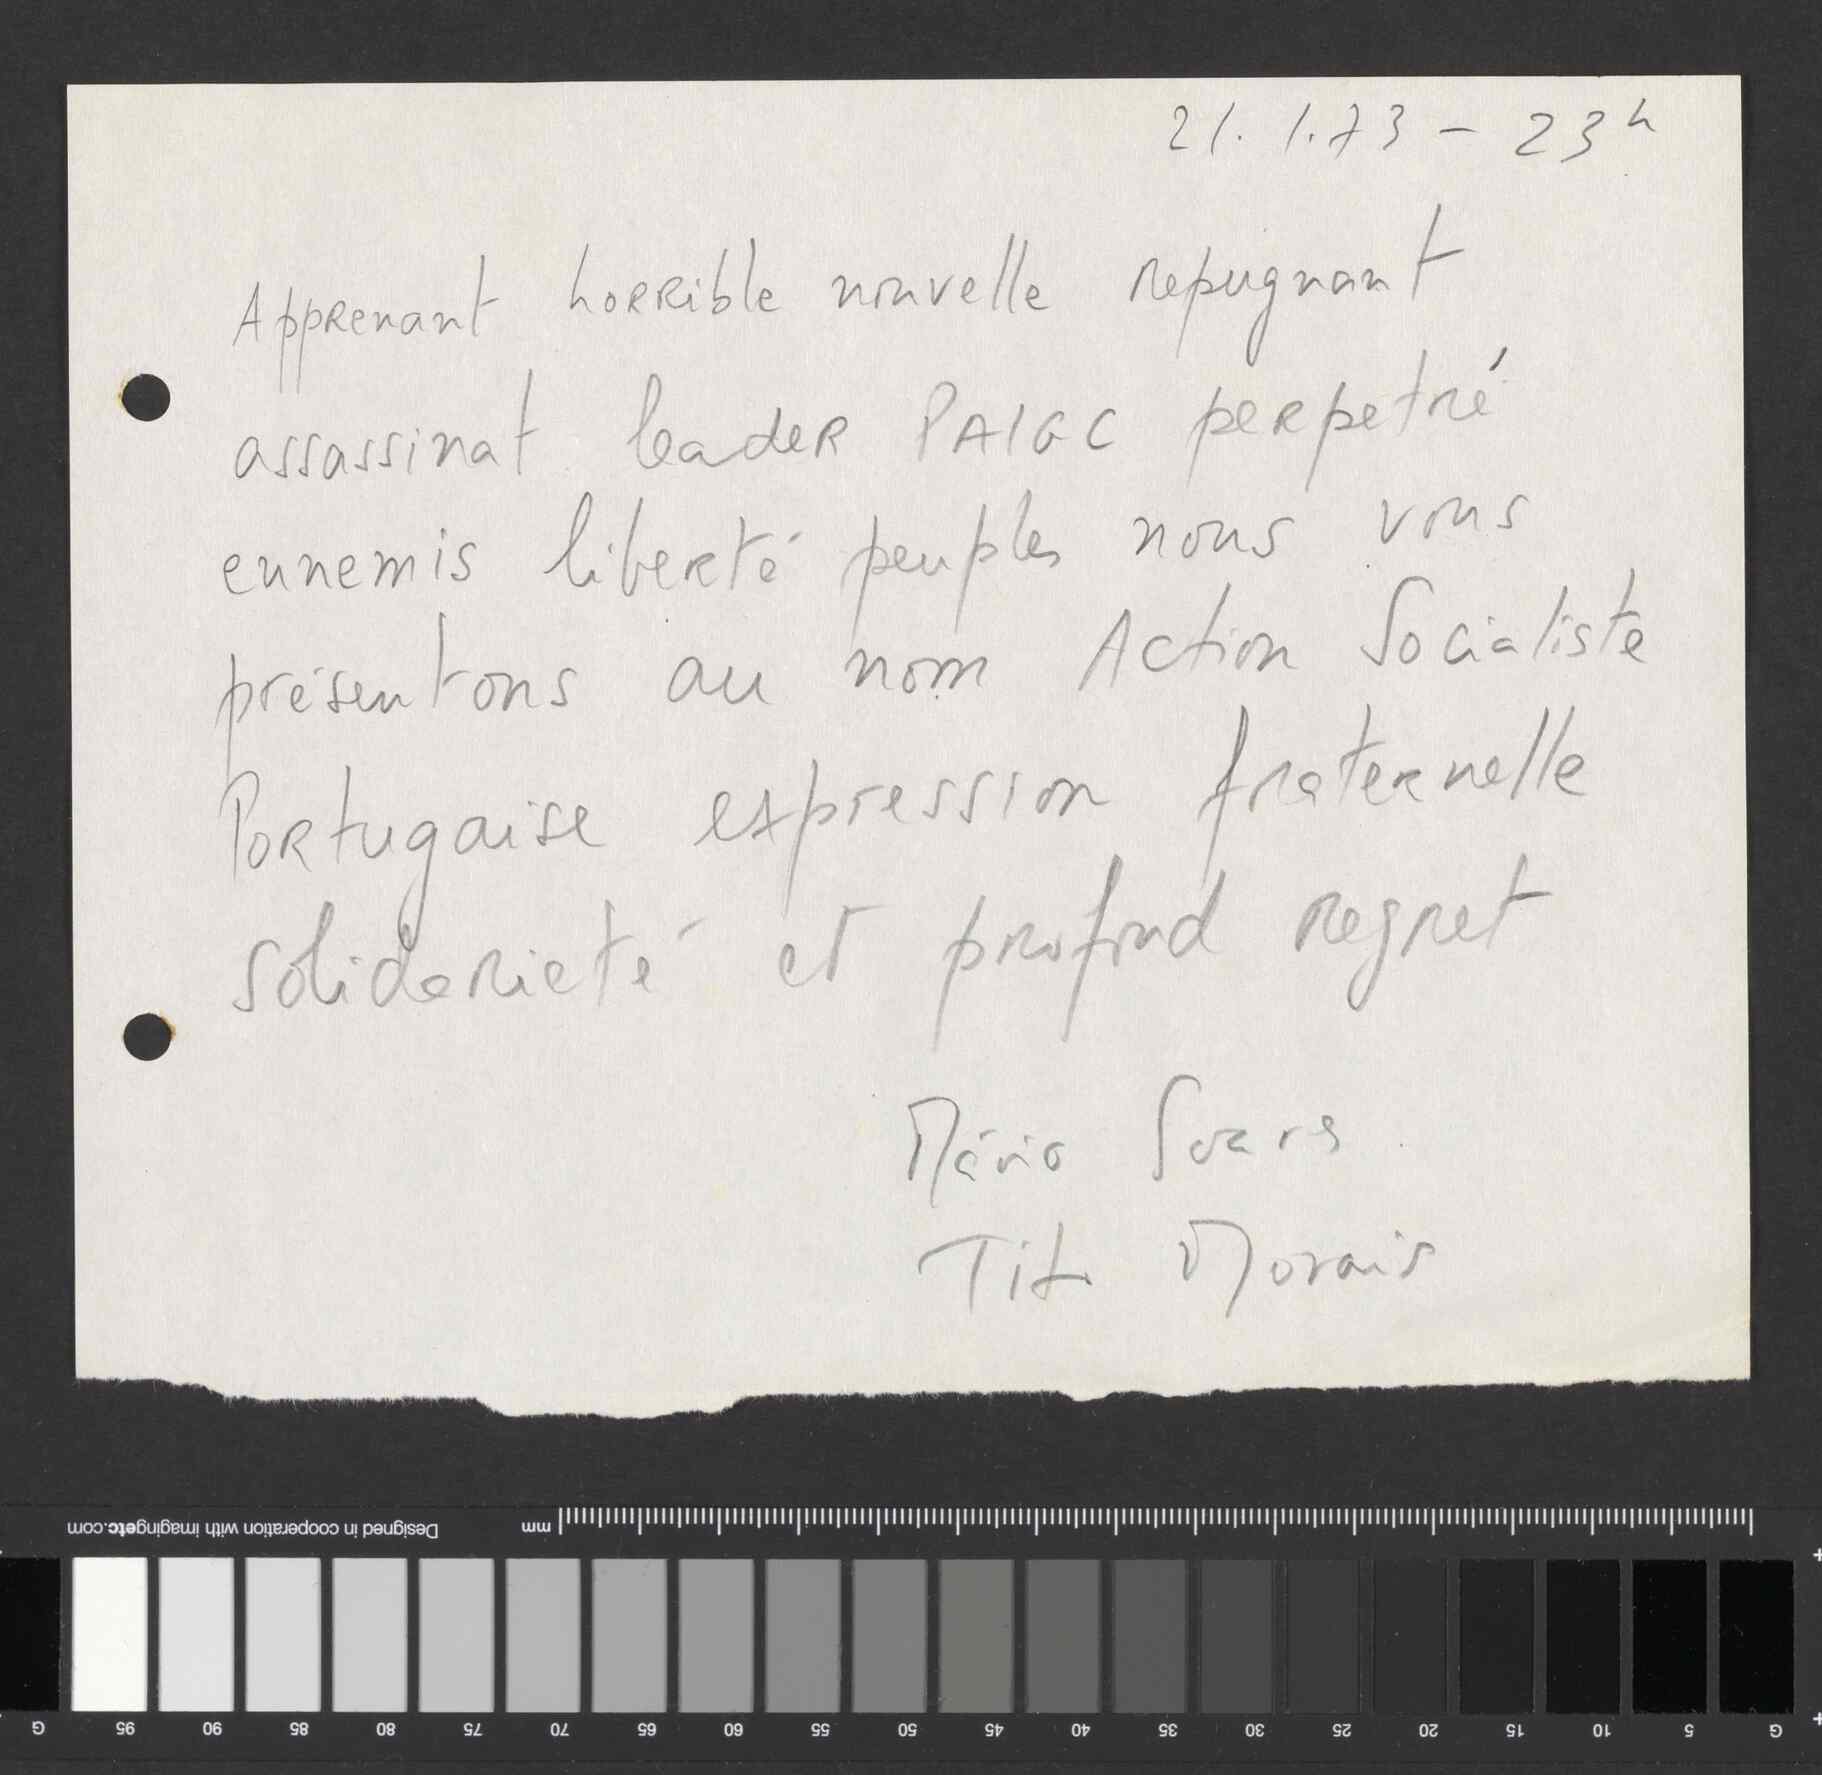 21.1.73 - 23h
Apprenant horrible nouvelle repugnant
assassinat leader PAIGC perpetré
ennemis liberté peuples nous vous
présentons au nom Action Socialiste
Portugaise expression fraternelle
solidarieté et profond regret
Mário Soares
Tito Morais
mm
Designed in cooperation with imagingetc.com
G 95 90 85 80 75 70 65 60 55 50 45 40 35 30 25 20 15 10 5 G